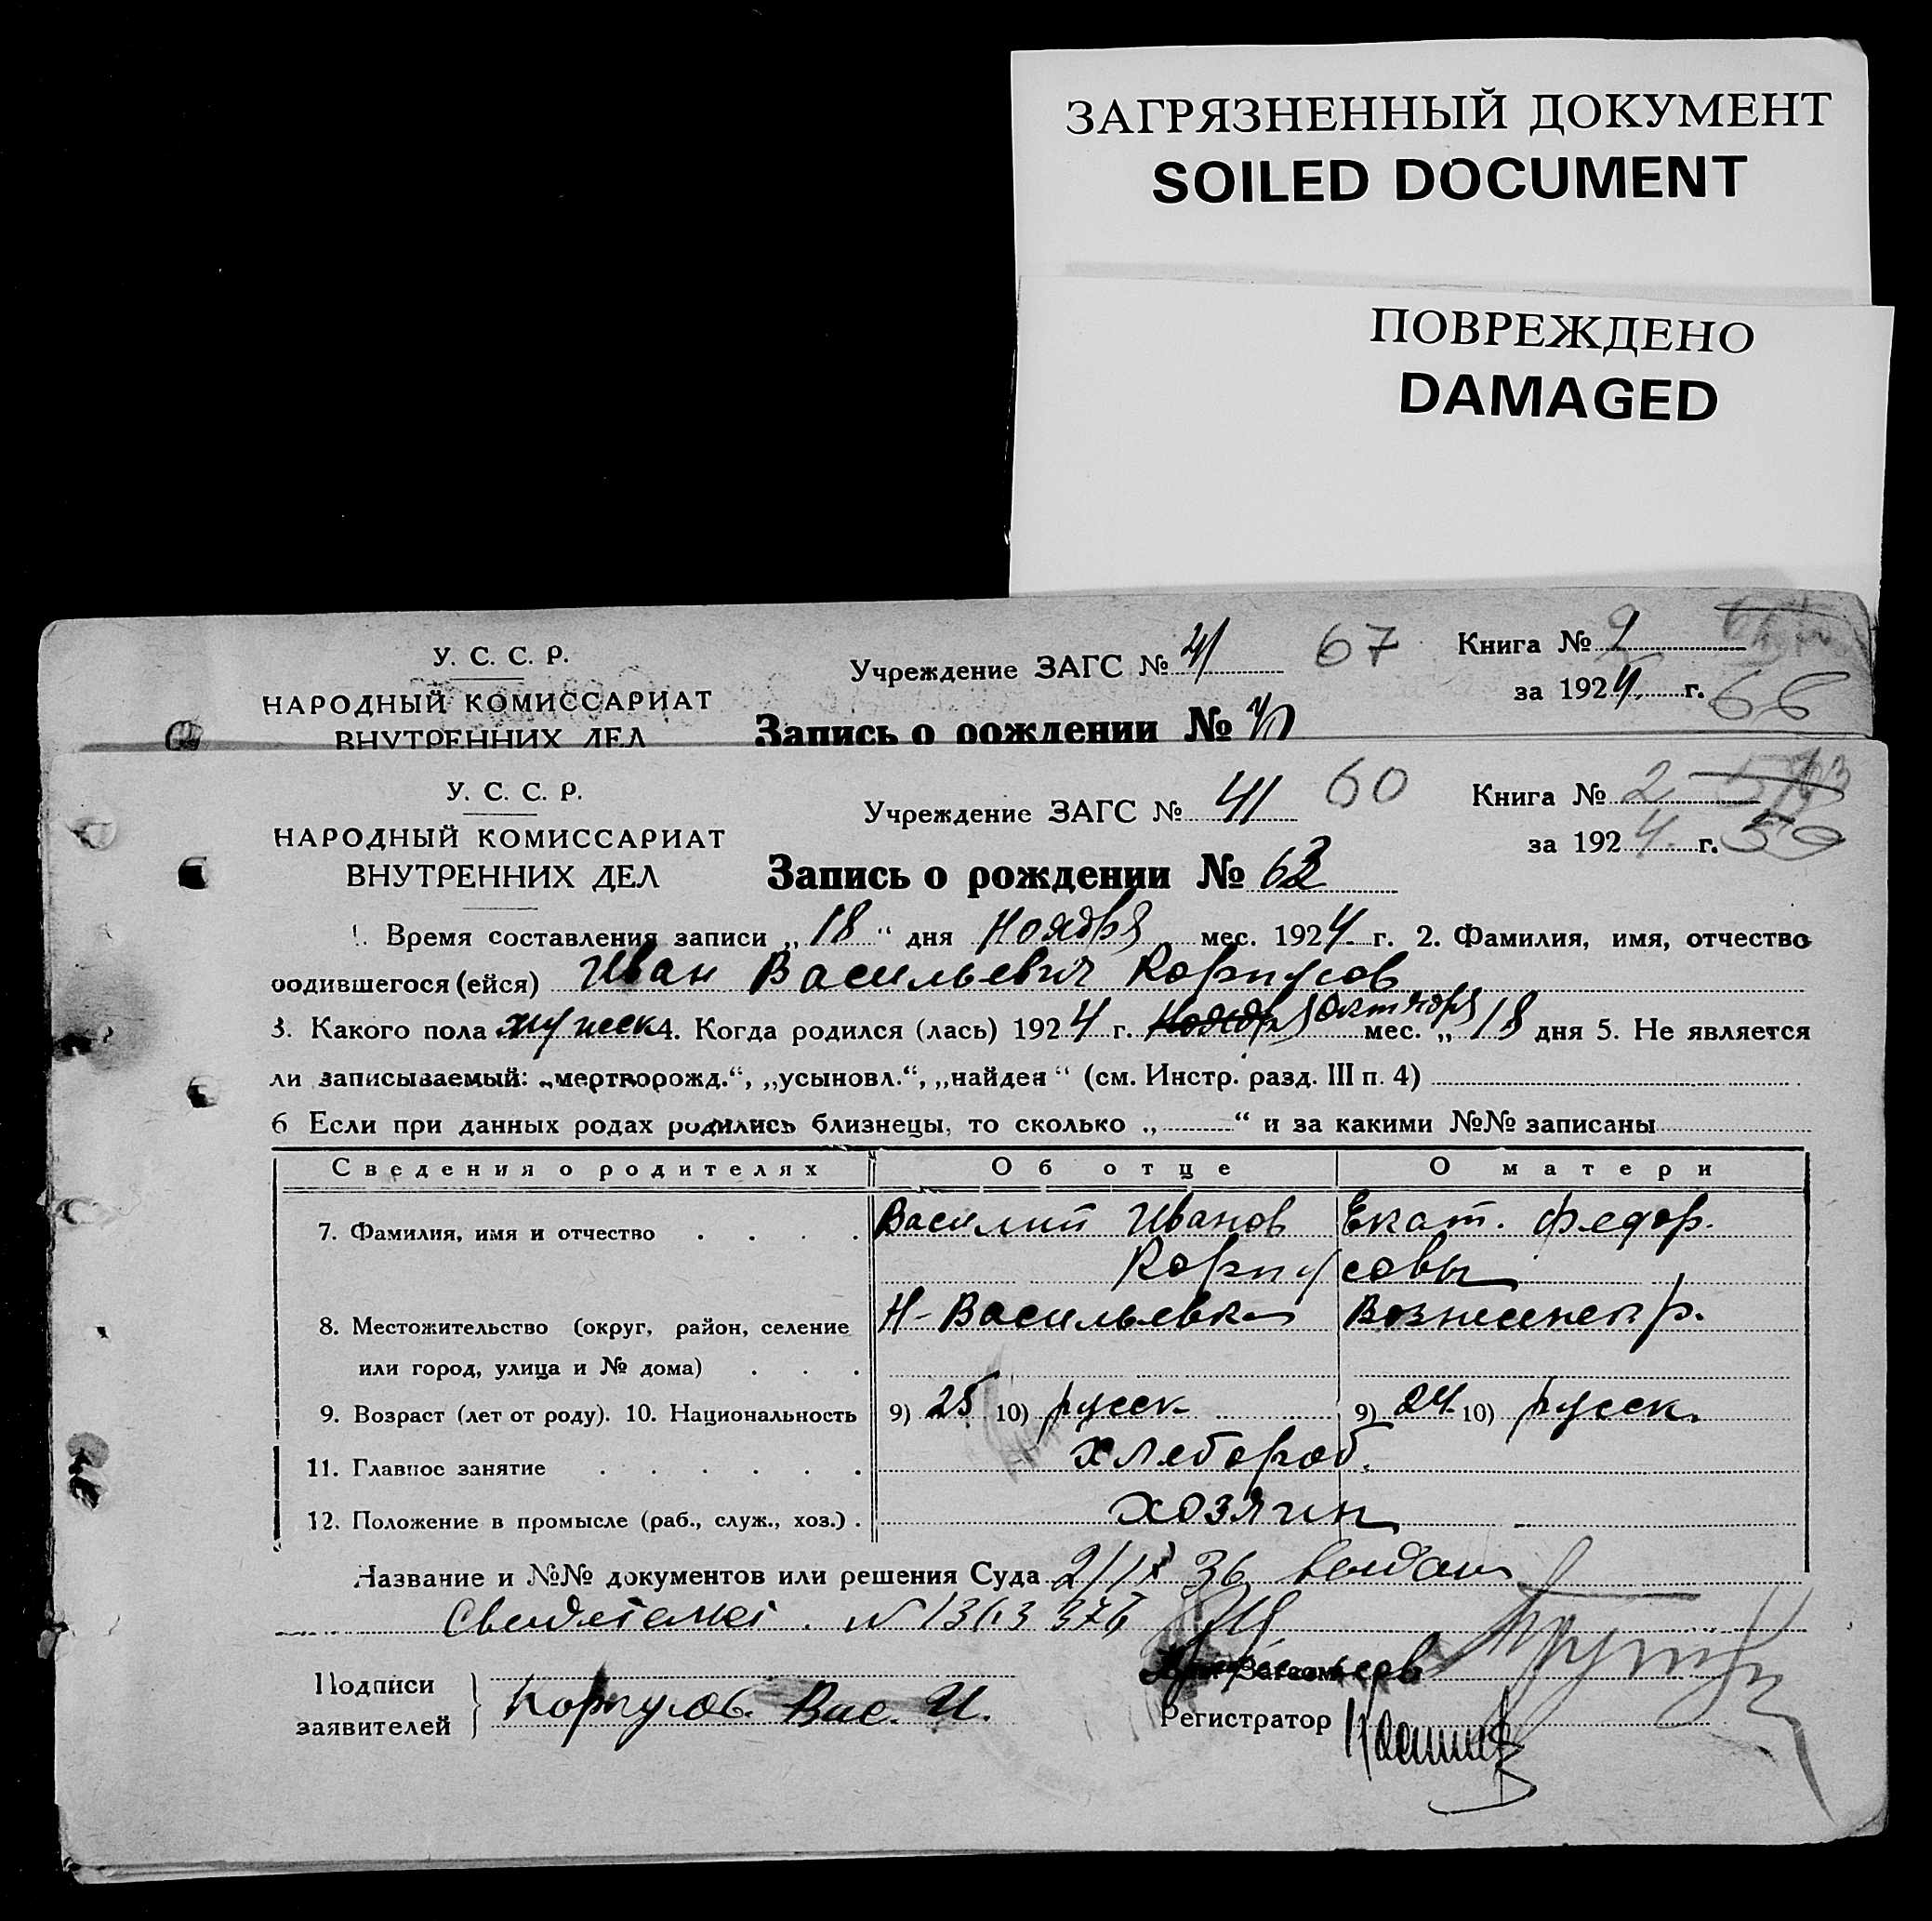 ЗАГРЯЗНЕННЫЙ ДОКУМЕНТ
SOILED DOCUMENT
ПОВРЕЖДЕНО
DAMAGED
У. С. С. Р.
НАРОДНЫЙ КОМИССАРИАТ
ВНУТРЕННИХ ДЕЛ
Учреждение ЗАГС № 41 67
Книга № 2
за 1924 г. 66
Запись о рождении №
У. С. С. Р.
НАРОДНЫЙ КОМИССАРИАТ
ВНУТРЕННИХ ДЕЛ
Учреждение ЗАГС № 41 60
Книга № 2
за 1924 г. 59
Запись о рождении № 63
1. Время составления записи „18“ дня Ноября мес. 1924 г. 2. Фамилия, имя, отчество
родившегося (ейся) Иван Васильевич Корпусов
3. Какого пола мужеск 4. Когда родился (лась) 1924 г. Ноября октября мес. „18 дня 5. Не является
ли записываемый: „мертворожд.“, „усыновл.“, „найден“ (см. Инстр. разд. III п. 4)
6 Если при данных родах родились близнецы, то сколько „ “ и за какими №№ записаны
Сведения о родителях Об отце О матери
7. Фамилия, имя и отчество Василий Иванов Екат. Федор.
Корпусовы
8. Местожительство (округ, район, селение Н-Васильевка Вознесенск р.
или город, улица и № дома)
9. Возраст (лет от роду). 10. Национальность 9) 25 10) русск. 9) 24 10) русск.
11. Главное занятие хлебороб.
12. Положение в промысле (раб., служ., хоз.) хозяин
Название и №№ документов или решения Суда 2/IX 36
№ 1363376
Подписи
заявителей Корпусов. Вас. И.
Регистратор